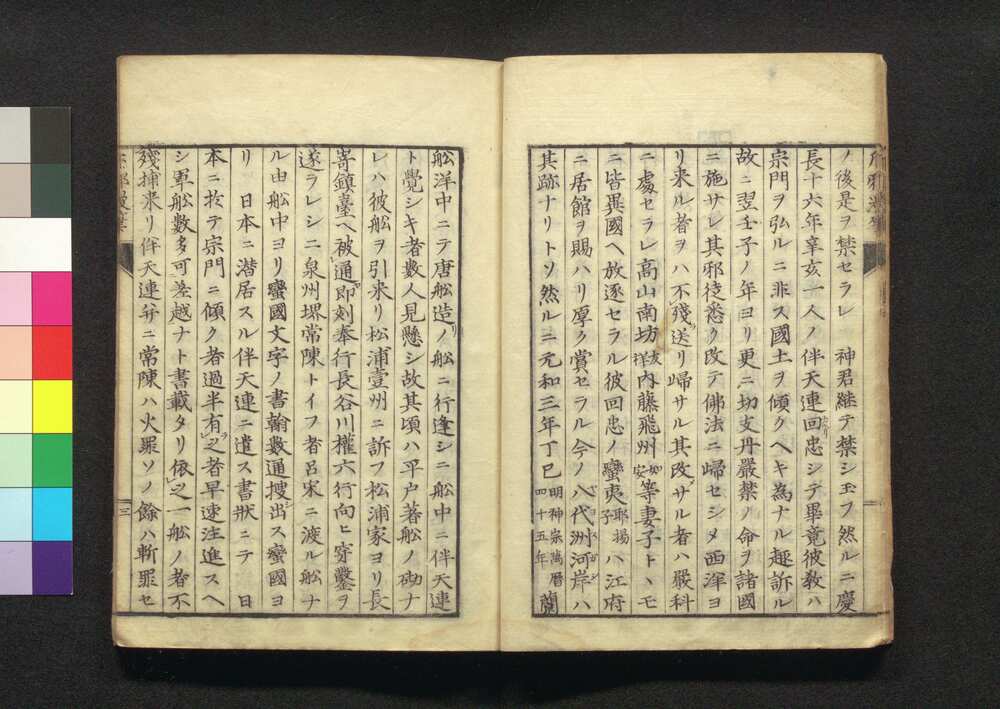 ノ後是ヲ禁セラレ　神君継テ禁シ玉フ然ルニ慶
長十六年辛亥一人ノ伴天連回忠シテ畢竟彼教ハ
宗門ヲ弘ルニ非ス國土ヲ傾クヘキ為ナル趣訴ル
故ニ翌壬子ノ年ヨリ更ニ切支丹嚴禁ノ命ヲ諸國
ニ施サレ其邪徒悉ク改テ佛法ニ歸セシメ西洋ヨ
リ来ル者ヲハ不殘送リ歸サル其改サル者ハ嚴科
ニ處セラレ高山南坊内藤飛州等妻子トヽモ
ニ皆異國ヘ放逐セラル彼回忠ノ蠻夷耶揚子ハ江府
ニ居館ヲ賜ハリ厚ク賞セラル今ノ八代洲河岸ハ
其跡ナリトソ然ルニ元和三年丁巳明神宗萬暦四十五年蘭
舩洋中ニテ唐舩造リノ舩ニ行逢シニ舩中ニ伴天連
ト覺シキ者數人見懸シ故其頃ハ平戸著舩ノ砌ナ
レハ彼舩ヲ引来リ松浦壹州ニ訴フ松浦家ヨリ長
嵜鎮臺ヘ被通即刻奉行長谷川權六行向ヒ穿鑿ヲ
遂ラレシニ泉州堺常陳トイフ者呂宋ニ渡ル舩ナ
ル由舩中ヨリ蠻國文字ノ書翰數通捜出ス蠻國ヨ
リ　日本ニ潜居スル伴天連ニ遣ス書狀ニテ　日
本ニ於テ宗門ニ傾ク者過半有之者早速注進スヘ
シ軍舩数多可差越ナト書載タリ依之一舩ノ者不
殘捕来リ伴天連并ニ常陳ハ火罪ソノ餘ハ斬罪セ
三